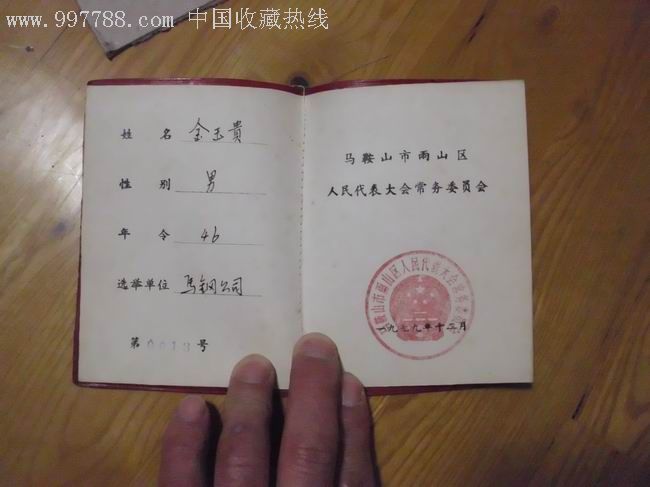 www.997788.com 中国收藏热线
姓 名 金玉貴
性 别 男
年 令 46
选举单位 马钢公司
第0013号
马鞍山市雨山区
人民代表大会常务委员会
马鞍山市雨山区人民代表大会常务委员会
一九七九年十二月